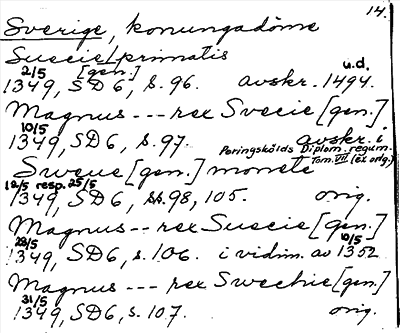 14.
Sverige, konungadöme
Suecie primatis
[gen.]
2/5 u.d.
1349, SD 6, s. 96. avskr. 1494.
Magnus --- rex Svecie [gen.]
10/5
1349, SD 6, s. 97. avskr. i
Peringskölds Diplom. regum.
Tom. VII. (ex orig.)
Sweue [gen.] monete
12/5 resp. 25/5
1349, SD 6, ss. 98, 105. orig.
Magnus -- rex Suecie [gen.]
28/5 10/5
1349, SD 6, s. 106. i vidim. av 1352
Magnus --- rex Swechie [gen.]
31/5
1349, SD 6, s. 107. orig.